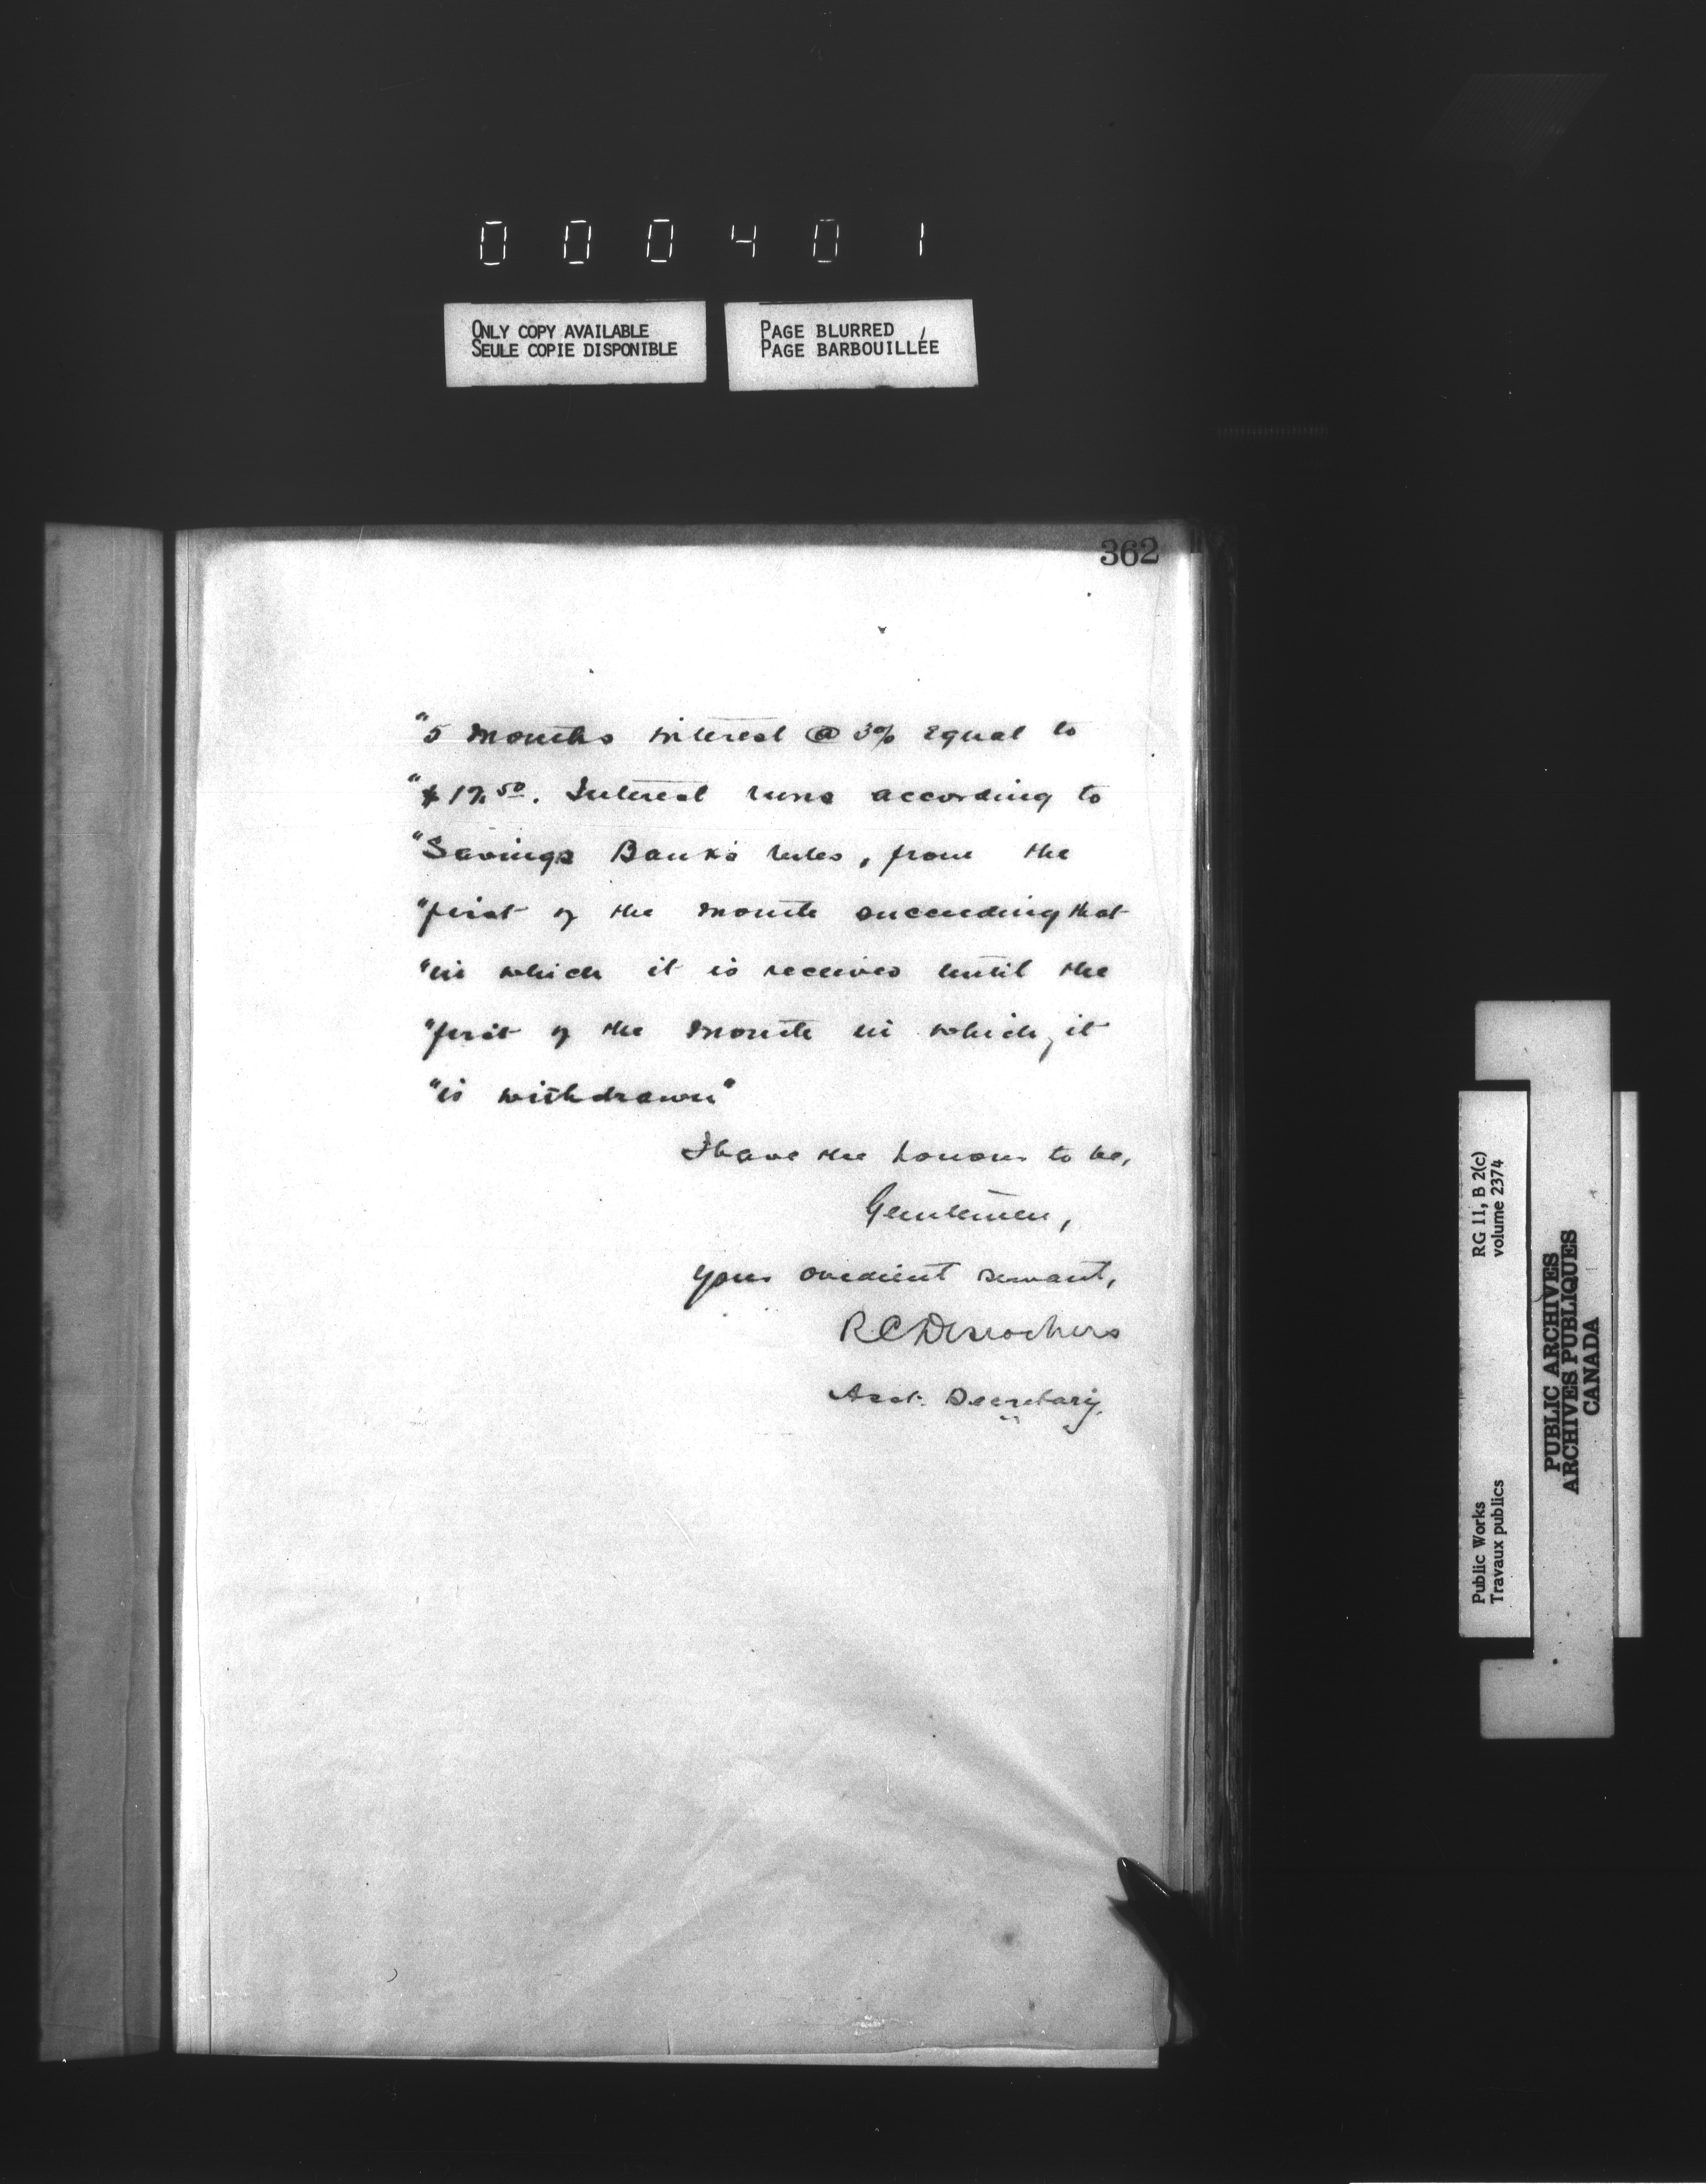 000401
ONLY COPY AVAILABLE
SEULE COPIE DISPONIBLE
PAGE BLURRED
PAGE BARBOUILLÉE
362
"5 months interest @ 3% equal to
"$17.50. Interest runs according to
"Savings Bank's rules, from the
"first of the month succeeding that
"in which it is received until the
"first of the month in which, it
"is withdrawn"
I have the honour to be,
Gentlemen,
Your obedient servant,
R.C. Desrochers
Asst. Secretary.
Public Works
Travaux publics
RG 11, B 2(c)
volume 2374
PUBLIC ARCHIVES
ARCHIVES PUBLIQUES
CANADA